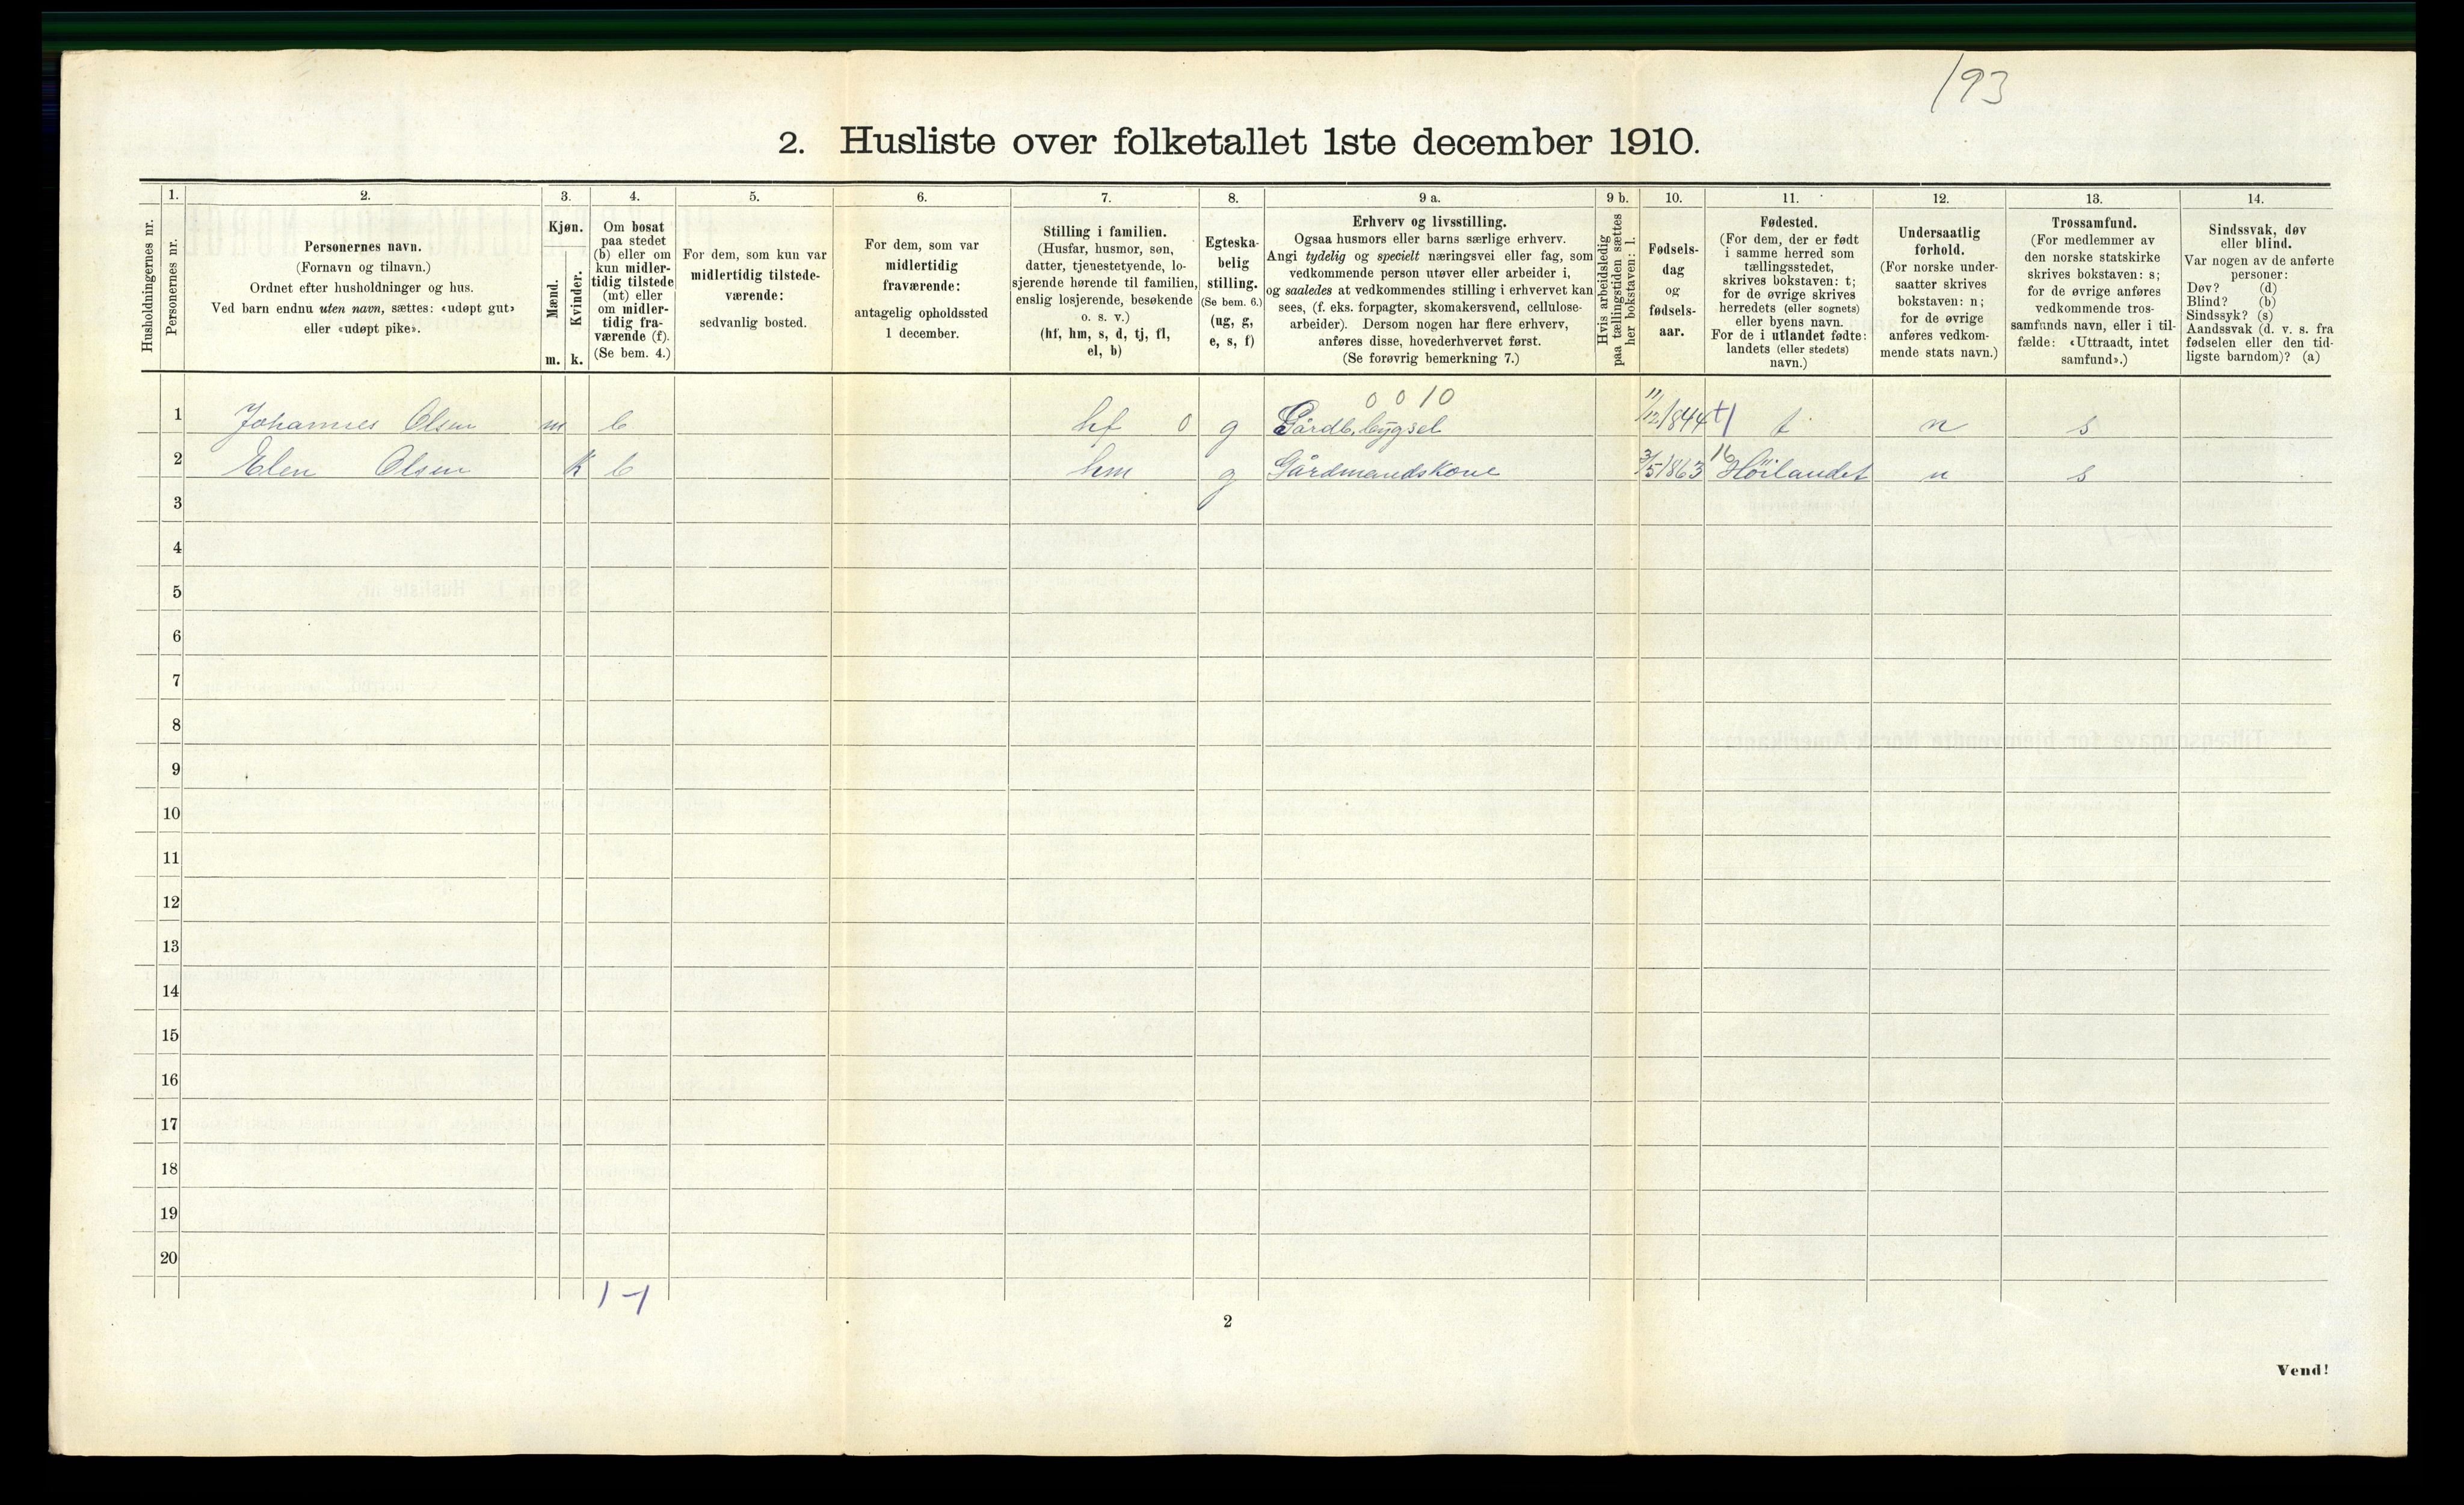 193
2. Husliste over folketallet 1ste december 1910.
1. 2. 3. 4. 5. 6. 7. 8. 9 a. 9 b. 10. 11. 12. 13. 14.
Husholdningernes nr.
Personernes nr.
Personernes navn.
(Fornavn og tilnavn.)
Ordnet efter husholdninger og hus.
Ved barn endnu uten navn, sættes: «udøpt gut»
eller «udøpt pike».
Kjøn.
Mænd.
Kvinder.
m. k.
Om bosat
paa stedet
(b) eller om
kun midler-
tidig tilstede
(mt) eller
om midler-
tidig fra-
værende (f).
(Se bem. 4.)
For dem, som kun var
midlertidig tilstede-
værende:
sedvanlig bosted.
For dem, som var
midlertidig
fraværende:
antagelig opholdssted
1 december.
Stilling i familien.
(Husfar, husmor, søn,
datter, tjenestetyende, lo-
sjerende hørende til familien,
enslig losjerende, besøkende
o. s. v.)
(hf, hm, s, d, tj, fl,
el, b)
Egteska-
belig
stilling.
(Se bem. 6.)
(ug, g,
e, s, f)
Erhverv og livsstilling.
Ogsaa husmors eller barns særlige erhverv.
Angi tydelig og specielt næringsvei eller fag, som
vedkommende person utøver eller arbeider i,
og saaledes at vedkommendes stilling i erhvervet kan
sees, (f. eks. forpagter, skomakersvend, cellulose-
arbeider). Dersom nogen har flere erhverv,
anføres disse, hovederhvervet først.
(Se forøvrig bemerkning 7.)
Hvis arbeidsledig
paa tællingstiden sættes
her bokstaven: l.
Fødsels-
dag
og
fødsels-
aar.
Fødested.
(For dem, der er født
i samme herred som
tællingsstedet,
skrives bokstaven: t;
for de øvrige skrives
herredets (eller sognets)
eller byens navn.
For de i utlandet fødte:
landets (eller stedets)
navn.)
Undersaatlig
forhold.
(For norske under-
saatter skrives
bokstaven: n;
for de øvrige
anføres vedkom-
mende stats navn.)
Trossamfund.
(For medlemmer av
den norske statskirke
skrives bokstaven: s;
for de øvrige anføres
vedkommende tros-
samfunds navn, eller i til-
fælde: «Uttraadt, intet
samfund».)
Sindssvak, døv
eller blind.
Var nogen av de anførte
personer:
Døv? (d)
Blind? (b)
Sindssyk? (s)
Aandssvak (d. v. s. fra
fødselen eller den tid-
ligste barndom)? (a)
0 0 10
1 Johannes Olsen m b hf 0 g Gårdb. bygsel 11/12/844 t n s
2 Elen Olsen k b hm g Gårdmandskone 3/5/863 16 Höilandet n s
3
4
5
6
7
8
9
10
11
12
13
14
15
16
17
18
19
20
1-1
2
Vend!